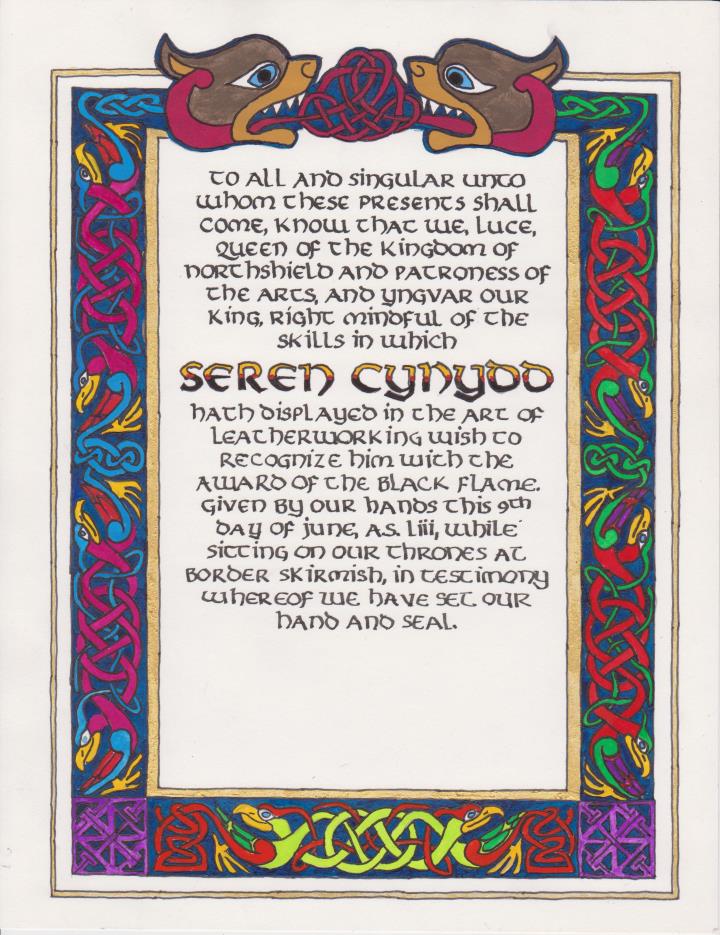 to all and singular unto
whom these presents shall
come, know that we, luce,
queen of the kingdom of
northshield and patroness of
the arts, and yngvar our
king, right mindful of the
skills in which
SEREN CYNYDD
hath displayed in the art of
leatherworking wish to
recognize him with the
award of the black flame.
given by our hands this 9th
day of june, a.s. liii, while
sitting on our thrones at
border skirmish, in testimony
whereof we have set our
hand and seal.